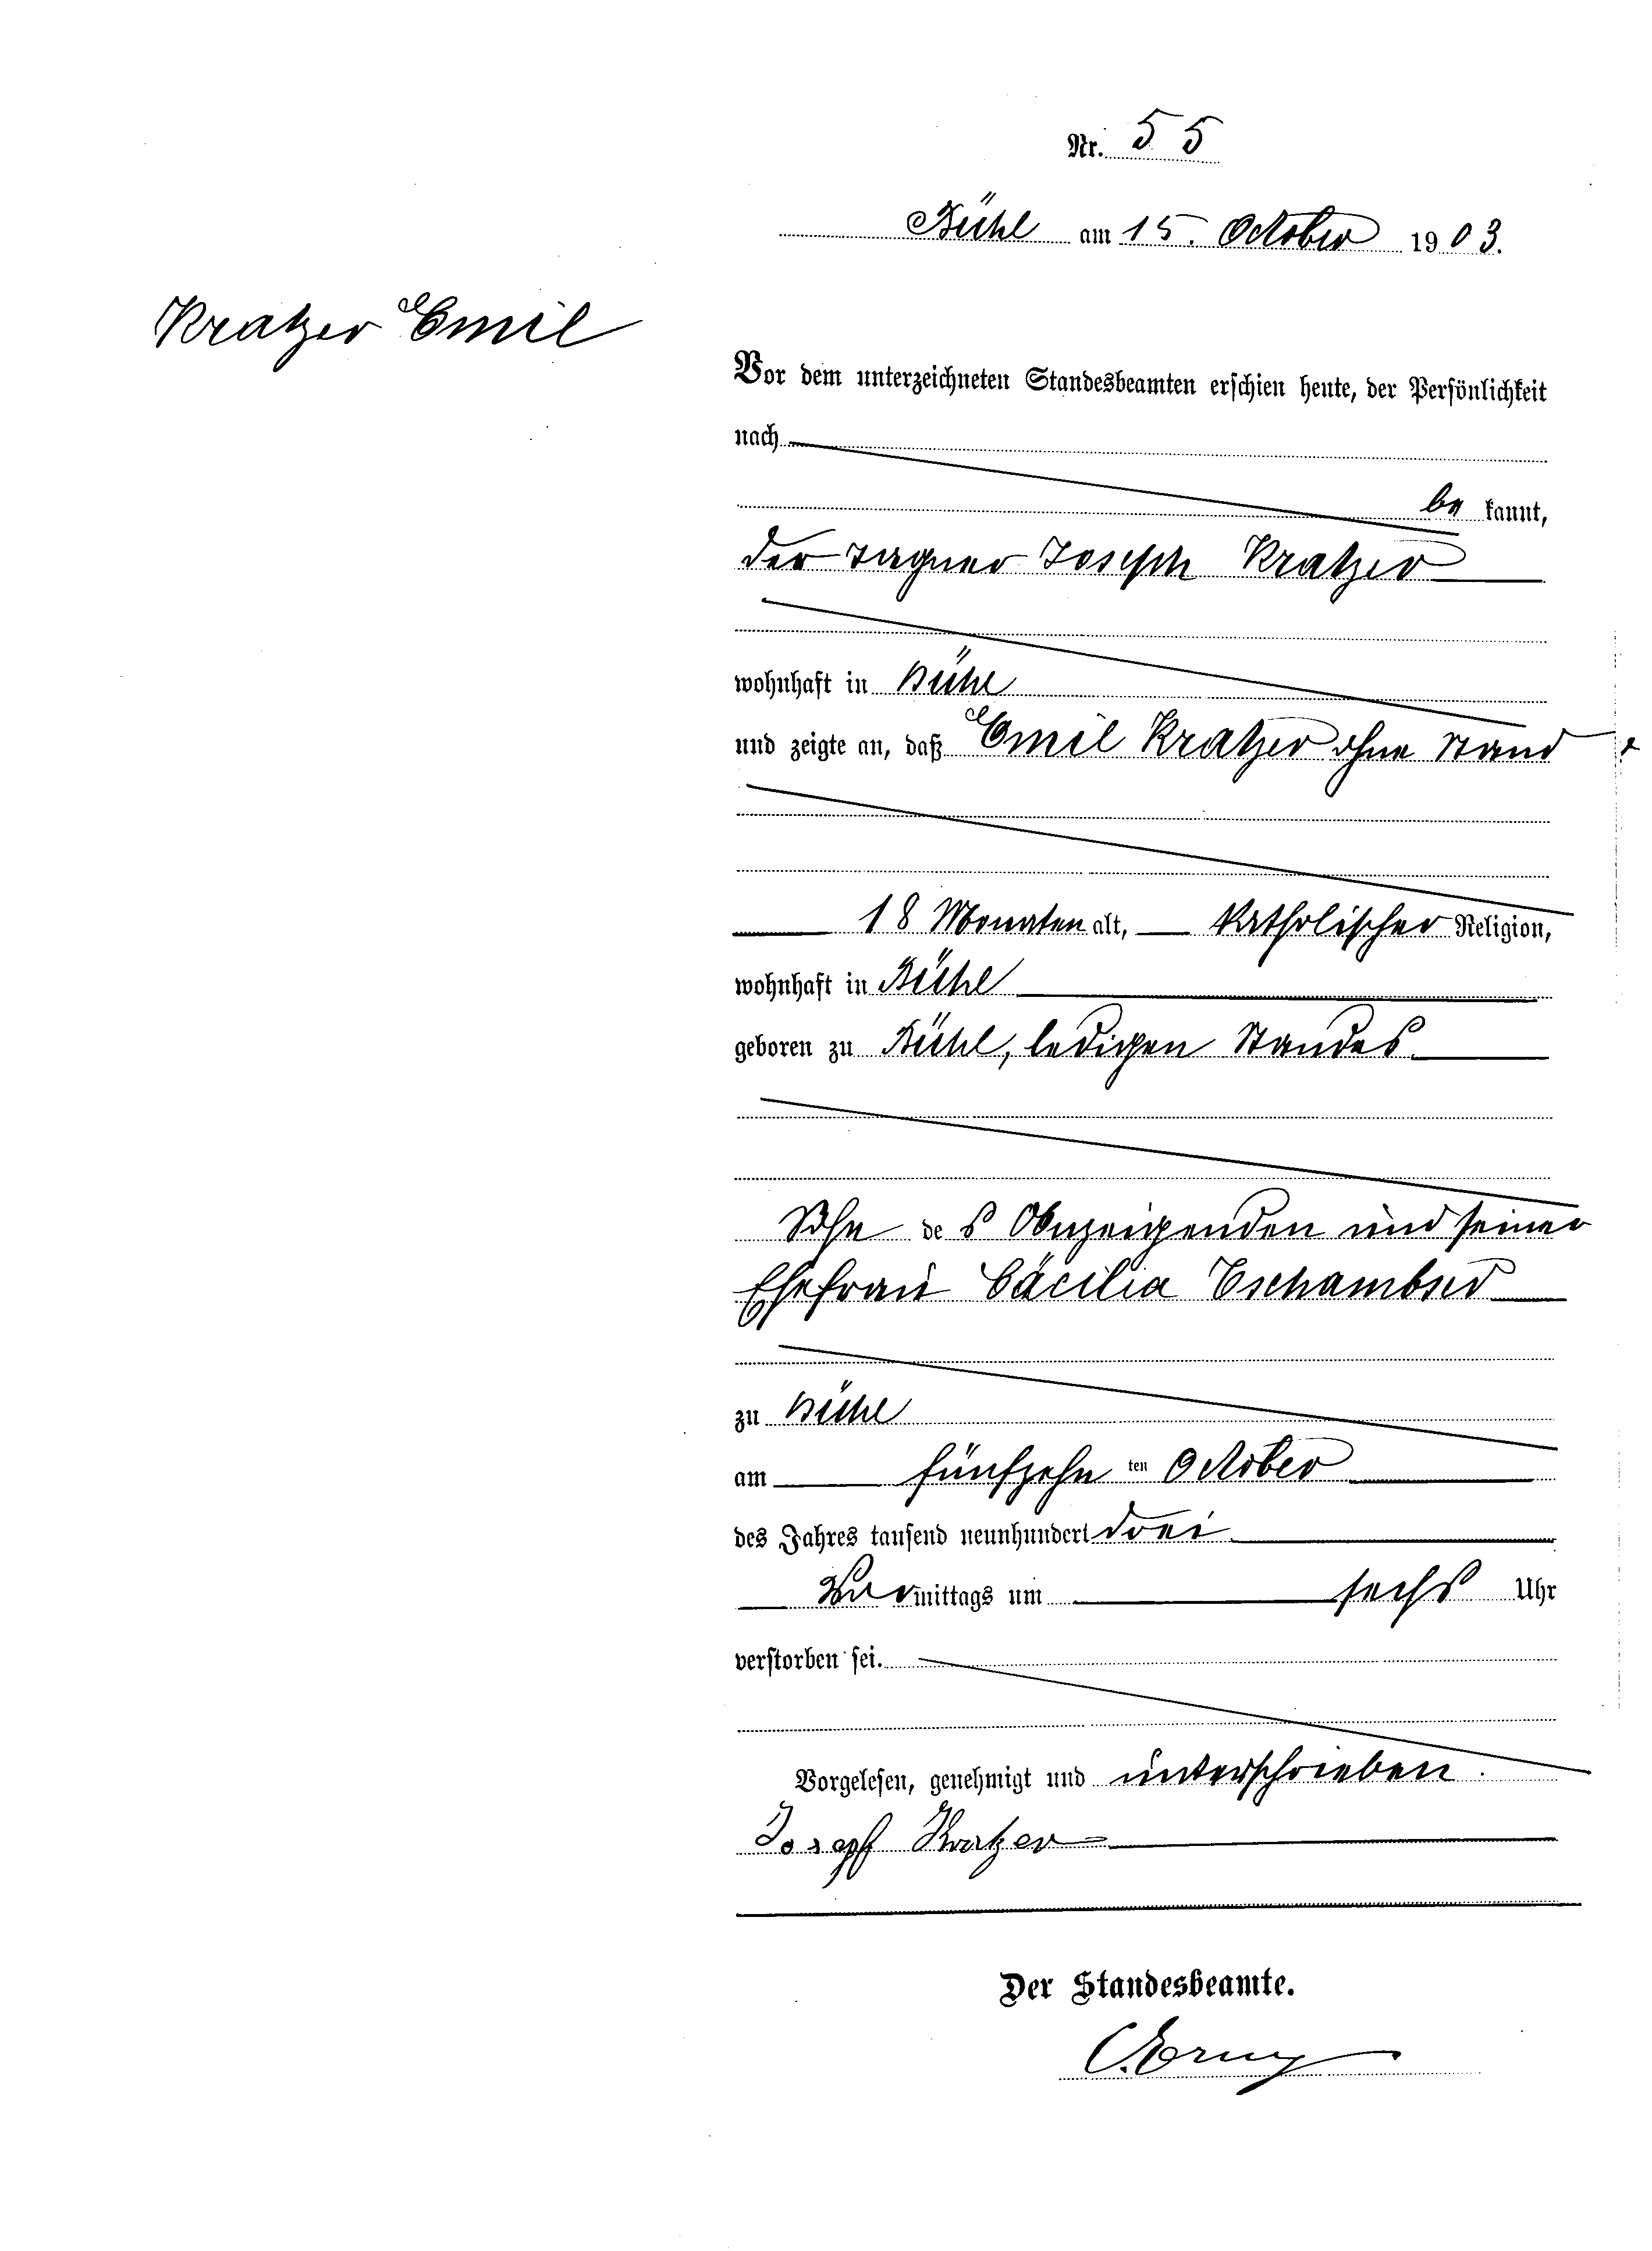 Nr. 55
Bühl am 15. October 1903.
Kratzer Emil
Vor dem unterzeichneten Standesbeamten erschien heute, der Persönlichkeit
nach
be kannt,
der Tagner Joseph Kratzer
wohnhaft in Bühl
und zeigte an, daß Emil Kratzer ohne Stand
18 Monaten alt, katholischer Religion,
wohnhaft in Bühl
geboren zu Bühl, ledigen Standes
Sohn des Anzeigenden und seiner
Ehefrau Cäcilia Tschamber
zu Bühl
am fünfzehn ten October
des Jahres tausend neunhundert drei
Vormittags um sechs Uhr
verstorben sei.
Vorgelesen, genehmigt und unterschrieben.
Josepf Kratzer
Der Standesbeamte.